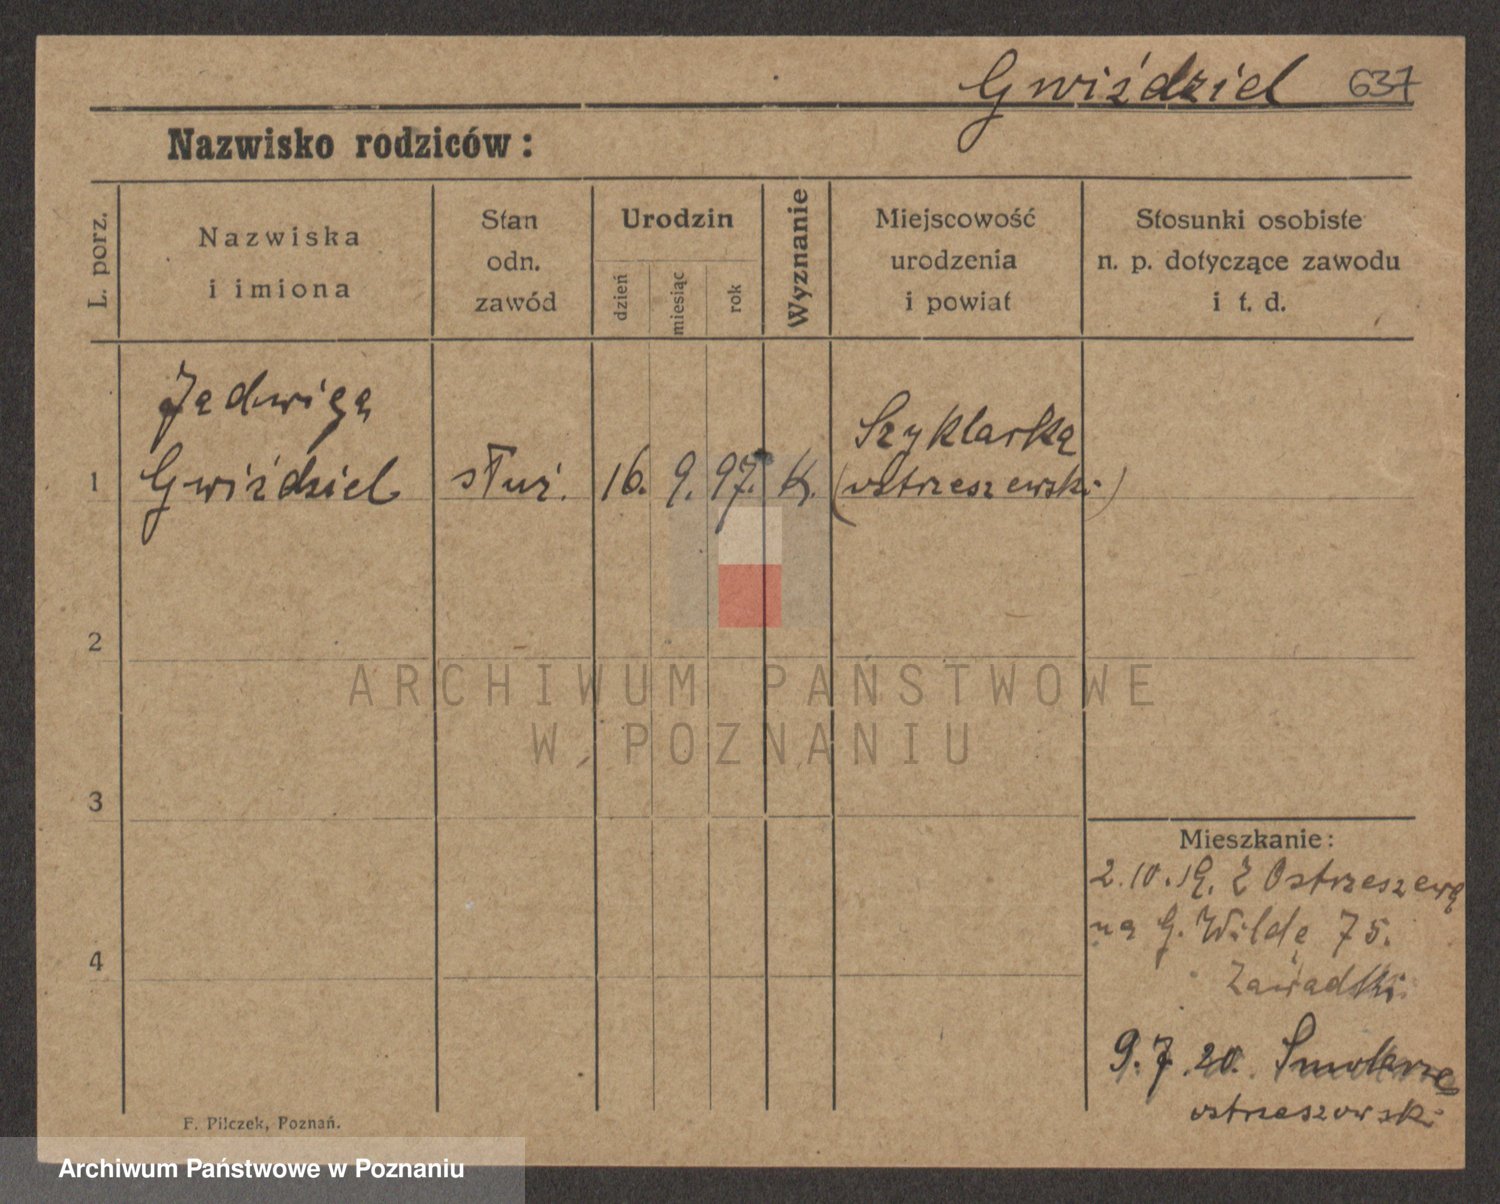 Gwiździel 637
Nazwisko rodziców:
L. porz.
Nazwiska
i imiona
Stan
odn.
zawód
Urodzin
dzień
miesiąc
rok
Wyznanie
Miejscowość
urodzenia
i powiat
Stosunki osobiste
n. p. dotyczące zawodu
i t. d.
Jadwiga
Szyklarka
1 Gwiździel służ. 16. 9. 97. K. (ostrzeszewski)
2
ARCHIWUM PAŃSTWOWE
W POZNANIU
3
Mieszkanie:
2.10.19. Z Ostrzeszewa
na G. Wildę 75.
4
Zawadzki
9.7.20. Smolarze
ostrzeszowski
F. Pilczek, Poznań.
Archiwum Państwowe w Poznaniu